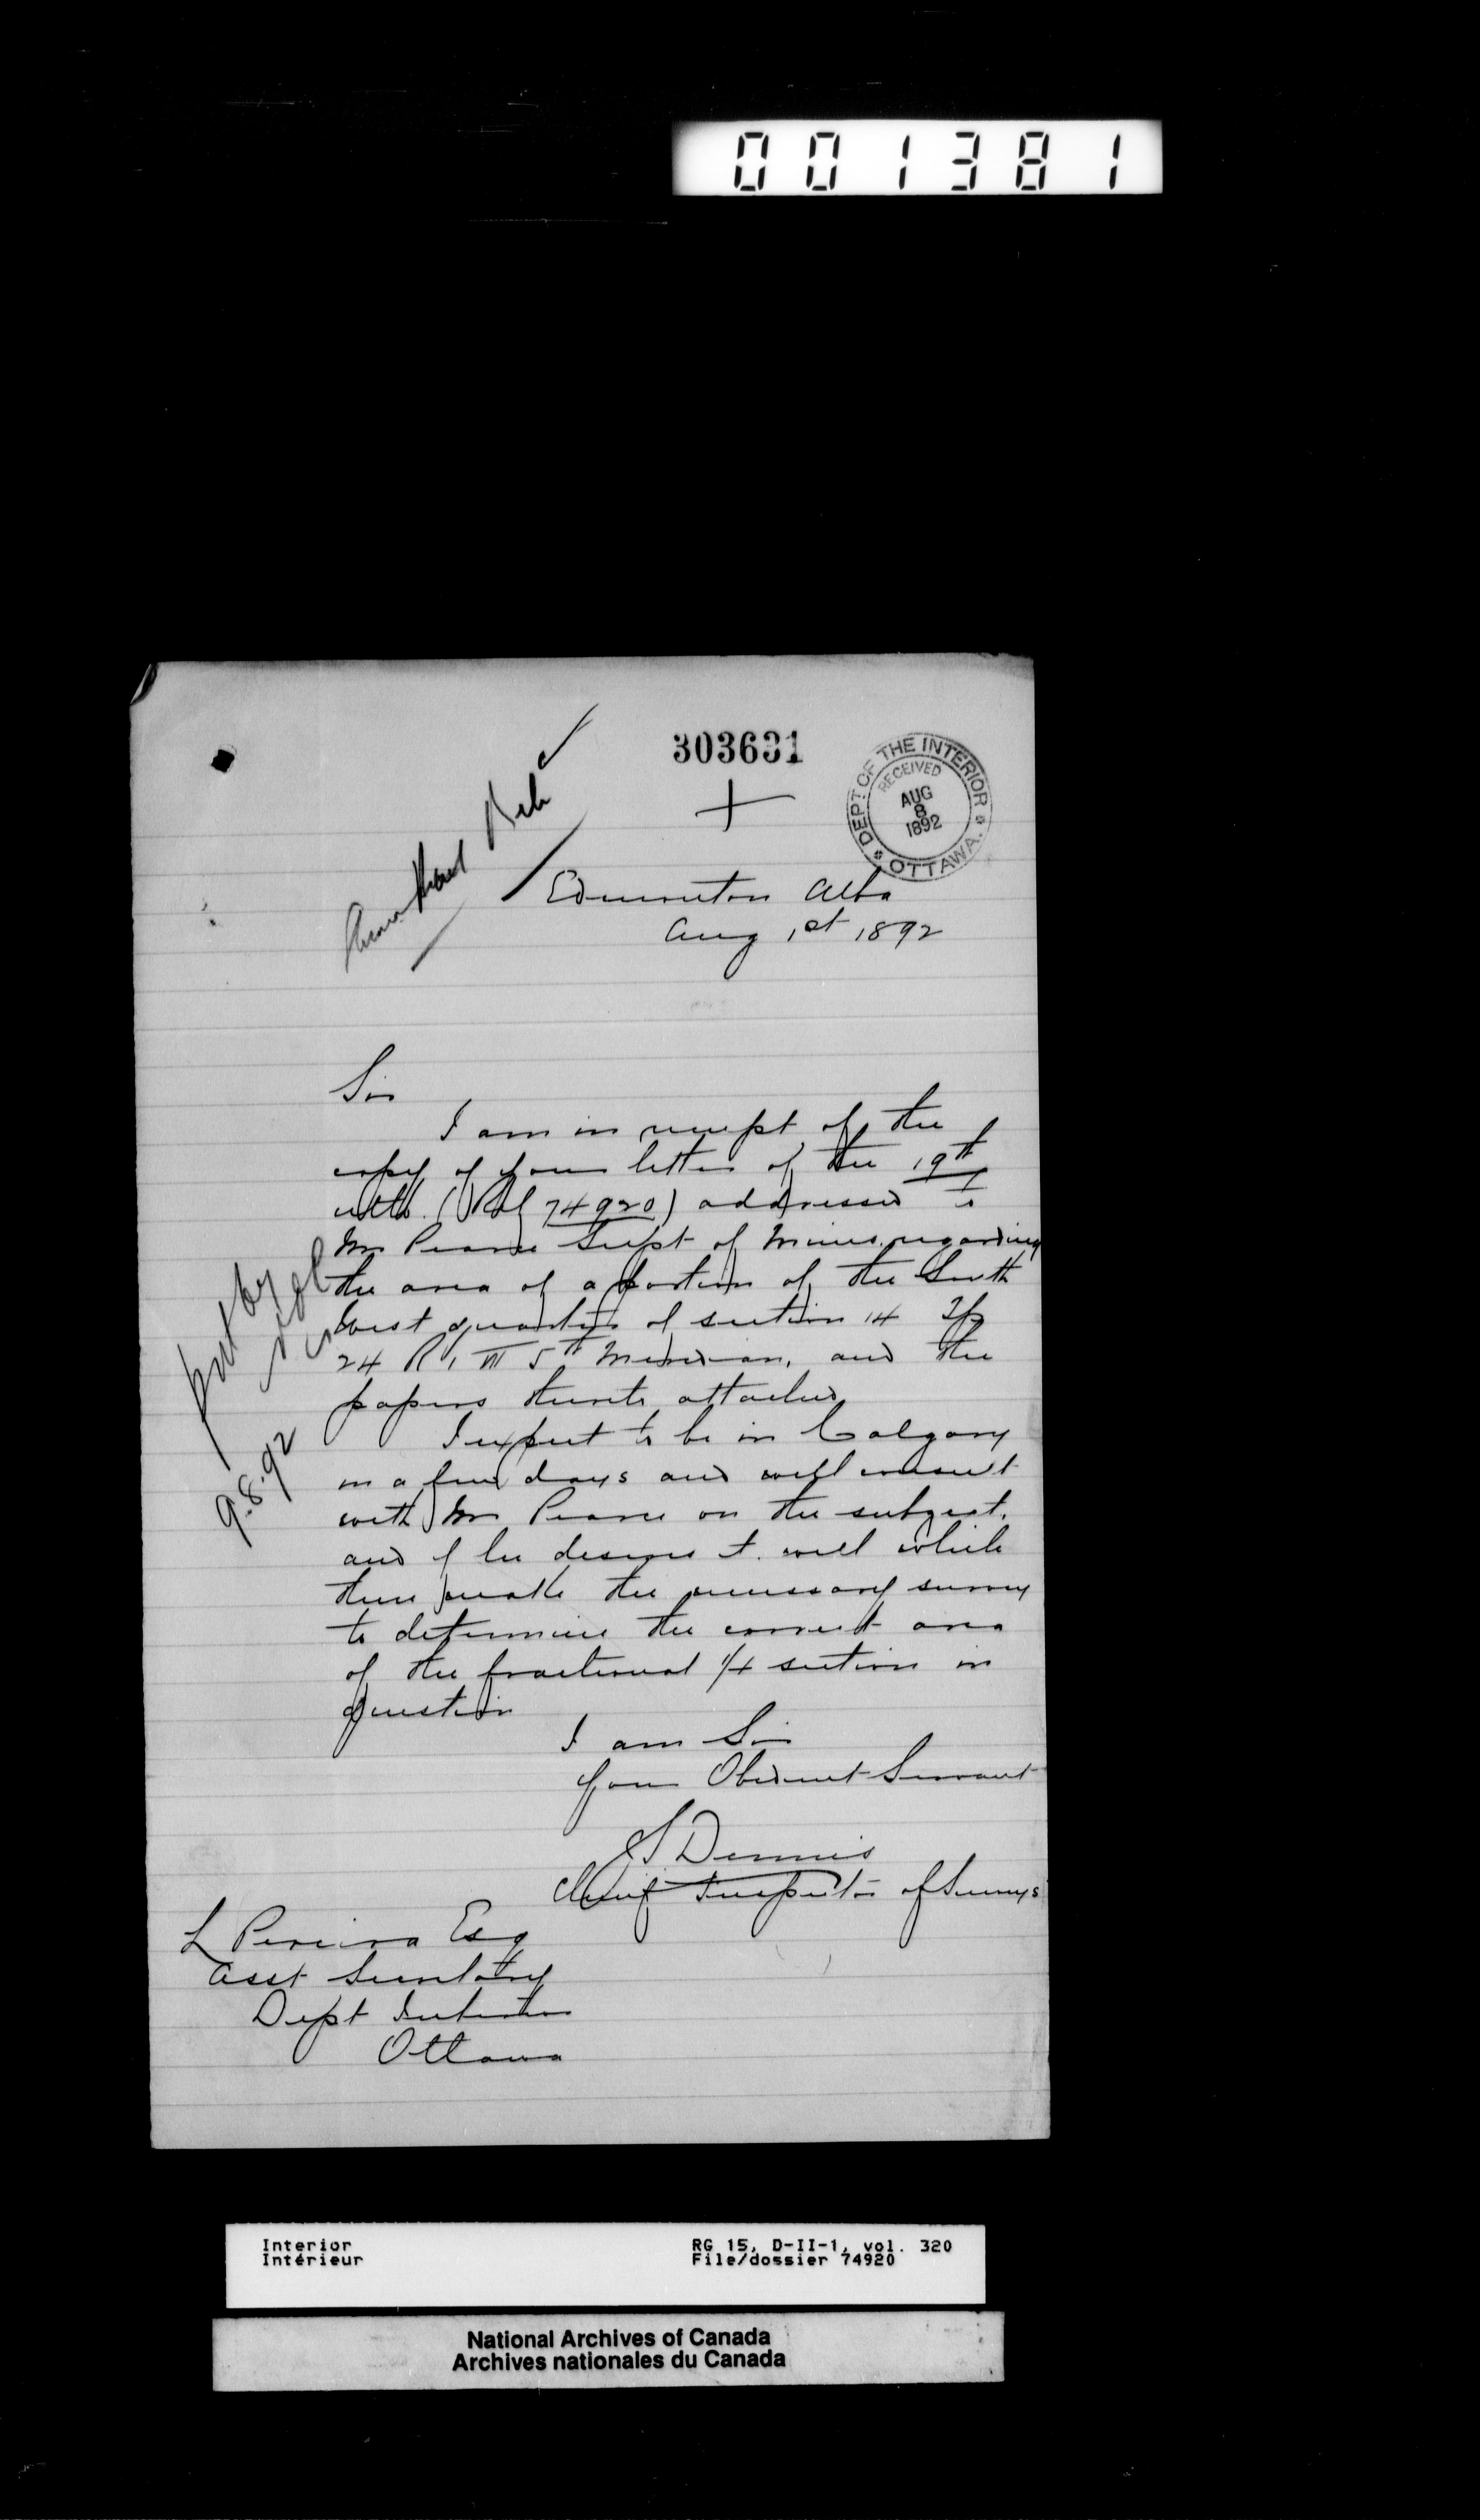 001381
303631
DEPT. OF THE INTERIOR
RECEIVED
AUG
8
1892
OTTAWA.
Edmonton Alba
Aug 1st 1892
Sir
I am in receipt of the
copy of your letter of the 19th
ulto. (Ref 74920) addressed to
Mr Pearce Supt of Mines regarding
the area of a portion of the South
West quarter of section 14 Tp
24 R 1 W 5th Meridian, and the
papers thereto attached
I expect to be in Calgary
in a few days and will consult
with Mr Pearce on the subject,
and if he desires it will while
there make the necessary survey
to determine the correct area
of the fractional 1/4 section in
question
I am Sir
Your Obedient Servant
J S Dennis
Chief Inspector of Surveys
L Pereira Esq
Asst Secretary
Dept Interior
Ottawa
put by
9.8.92
Interior
Intérieur
RG 15, D-II-1, vol. 320
File/dossier 74920
National Archives of Canada
Archives nationales du Canada